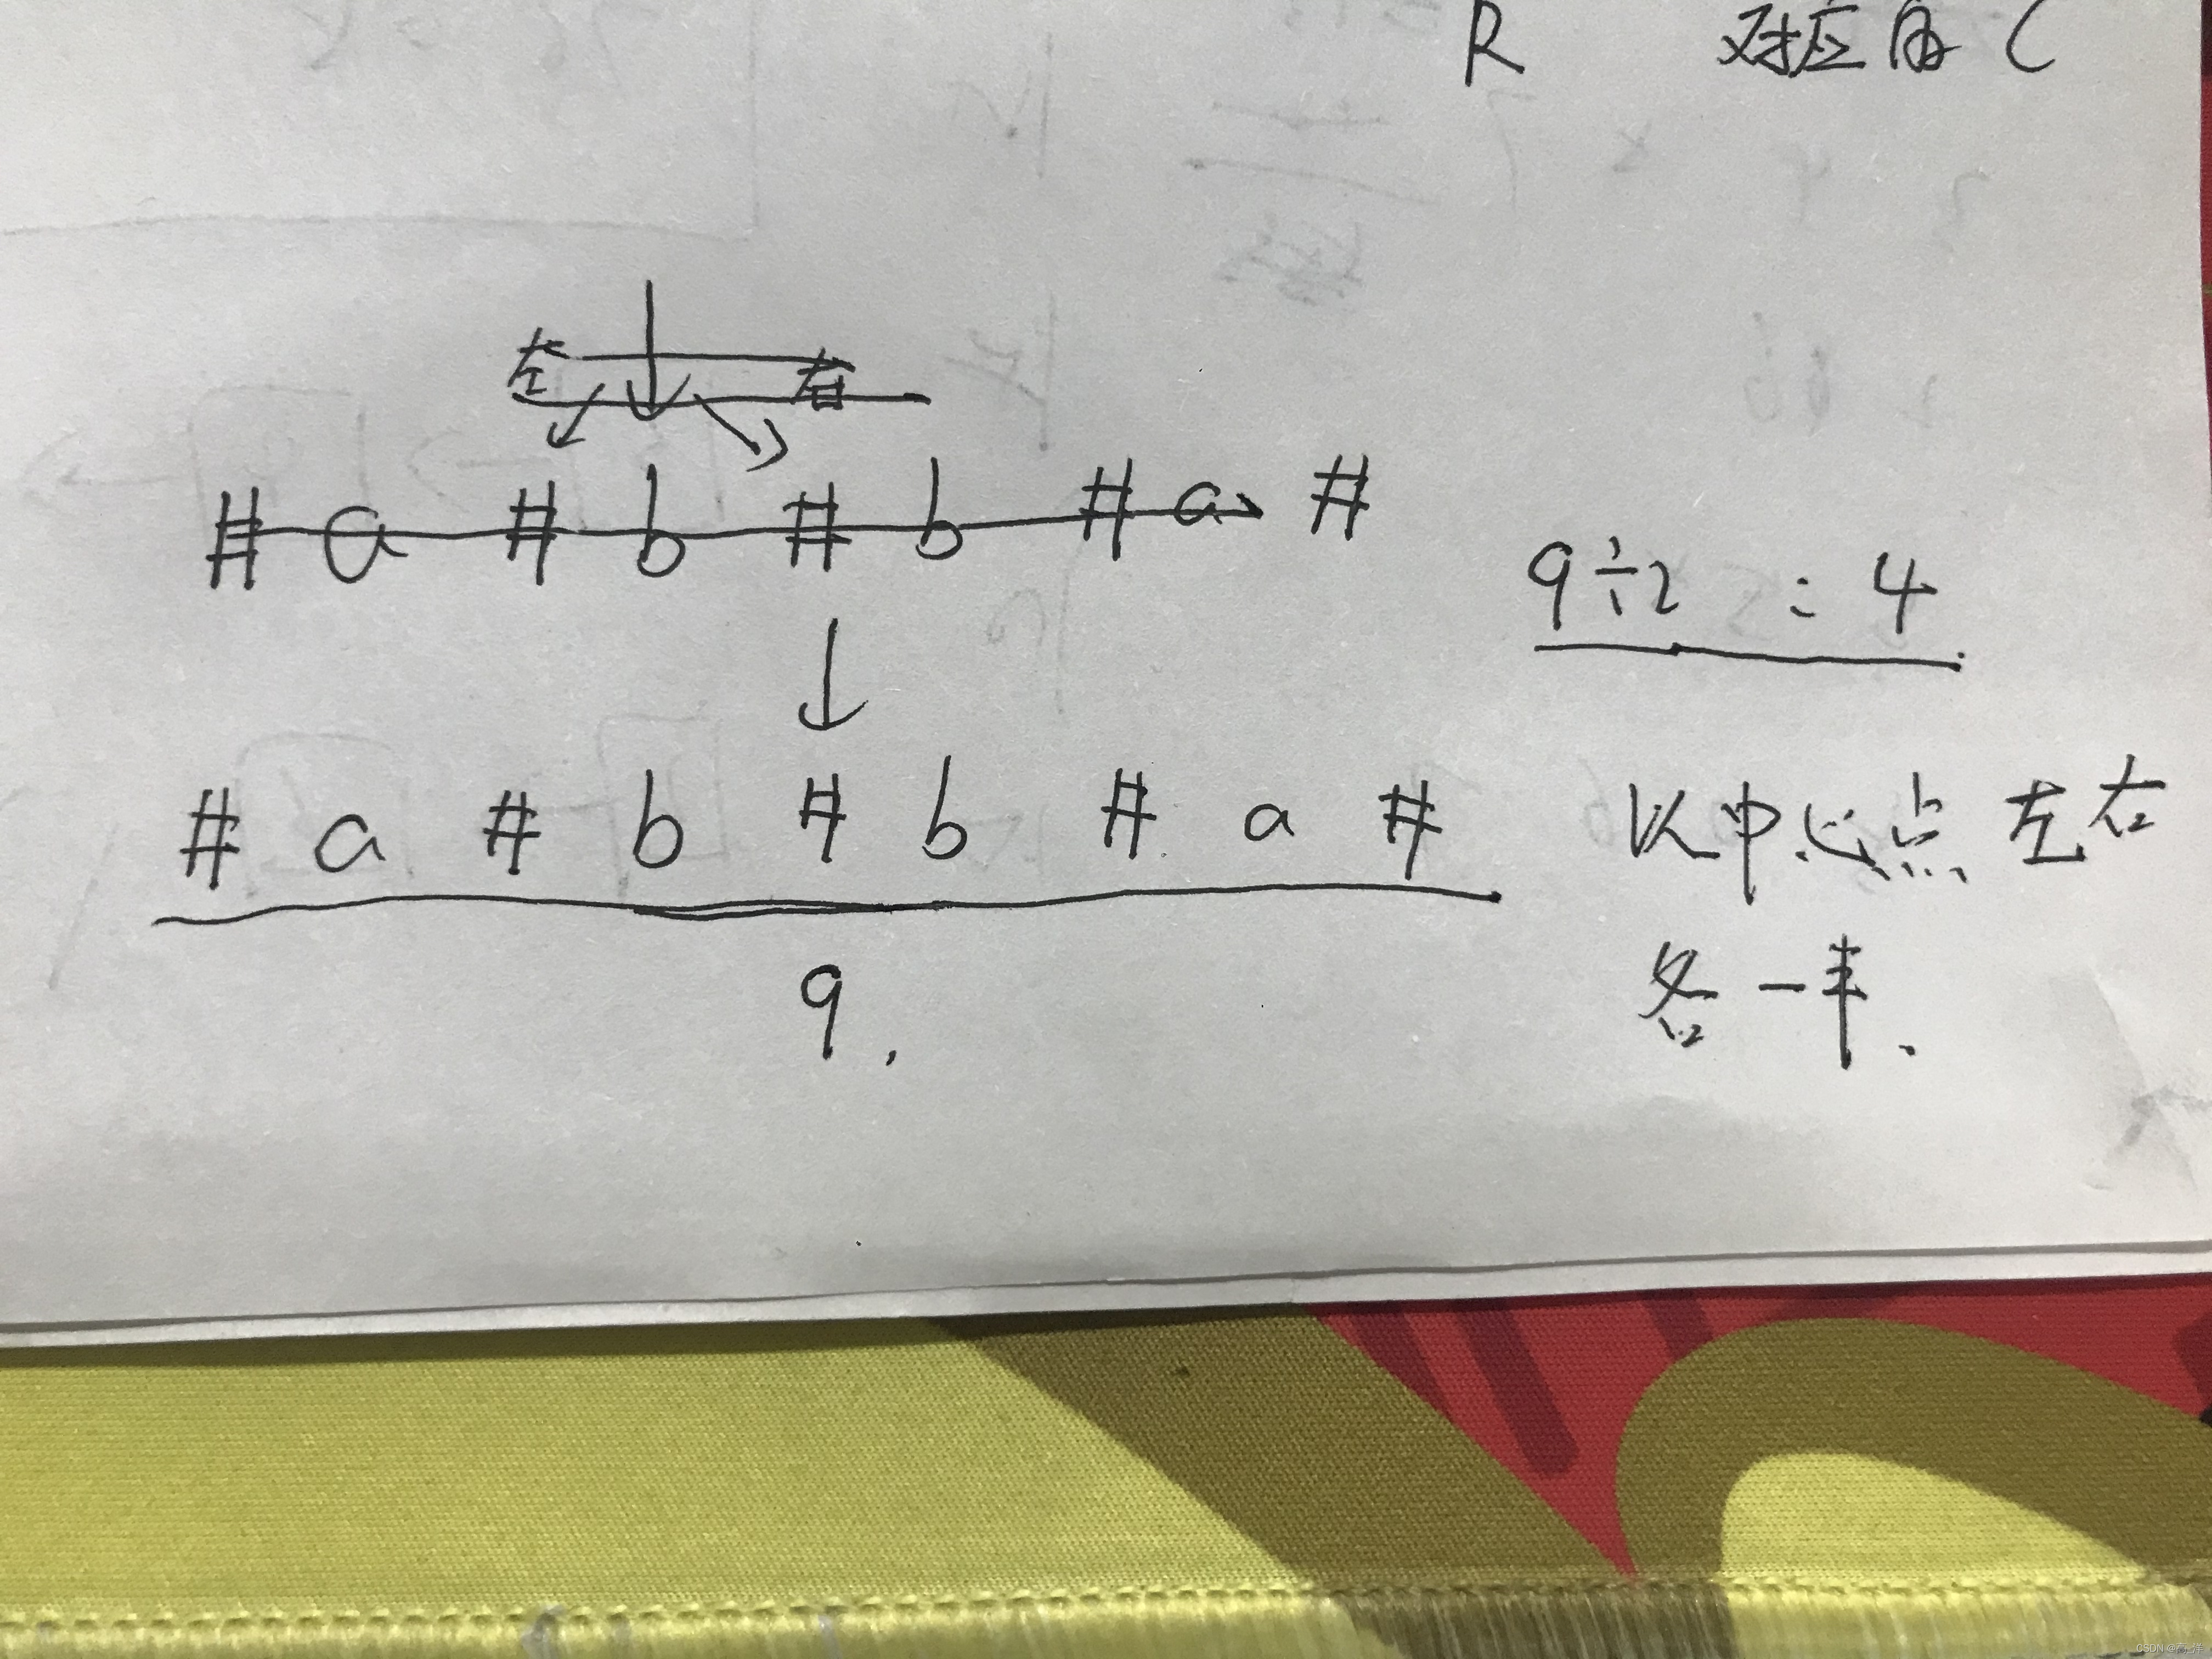 R 对应的 C
左 右
# a # b # b # a #
9÷2 = 4
# a # b # b # a #
以中心点左右
各一半.
9.
CSDN @高-洋